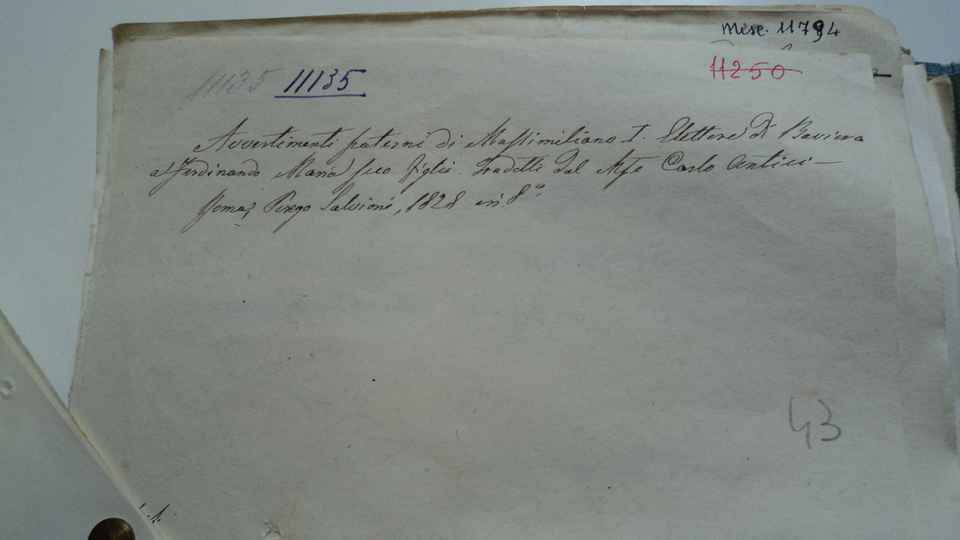 Misc. 11794
11250
11135 11135
Avvertimenti paterni di Massimiliano I. Elettore di Baviera
a Ferdinando Maria suo figlio. Tradotti dal Mse Carlo Antici—
Roma, Salvioni, 1828 in 8°.
43